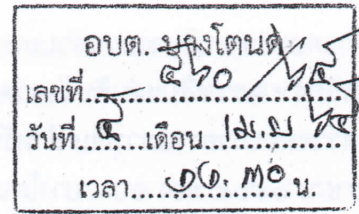 อบต. บางโตนด
เลขที่ ๕๗๐
วันที่ ๔ เดือน เม.ย
เวลา ๑๑.๓๐ น.